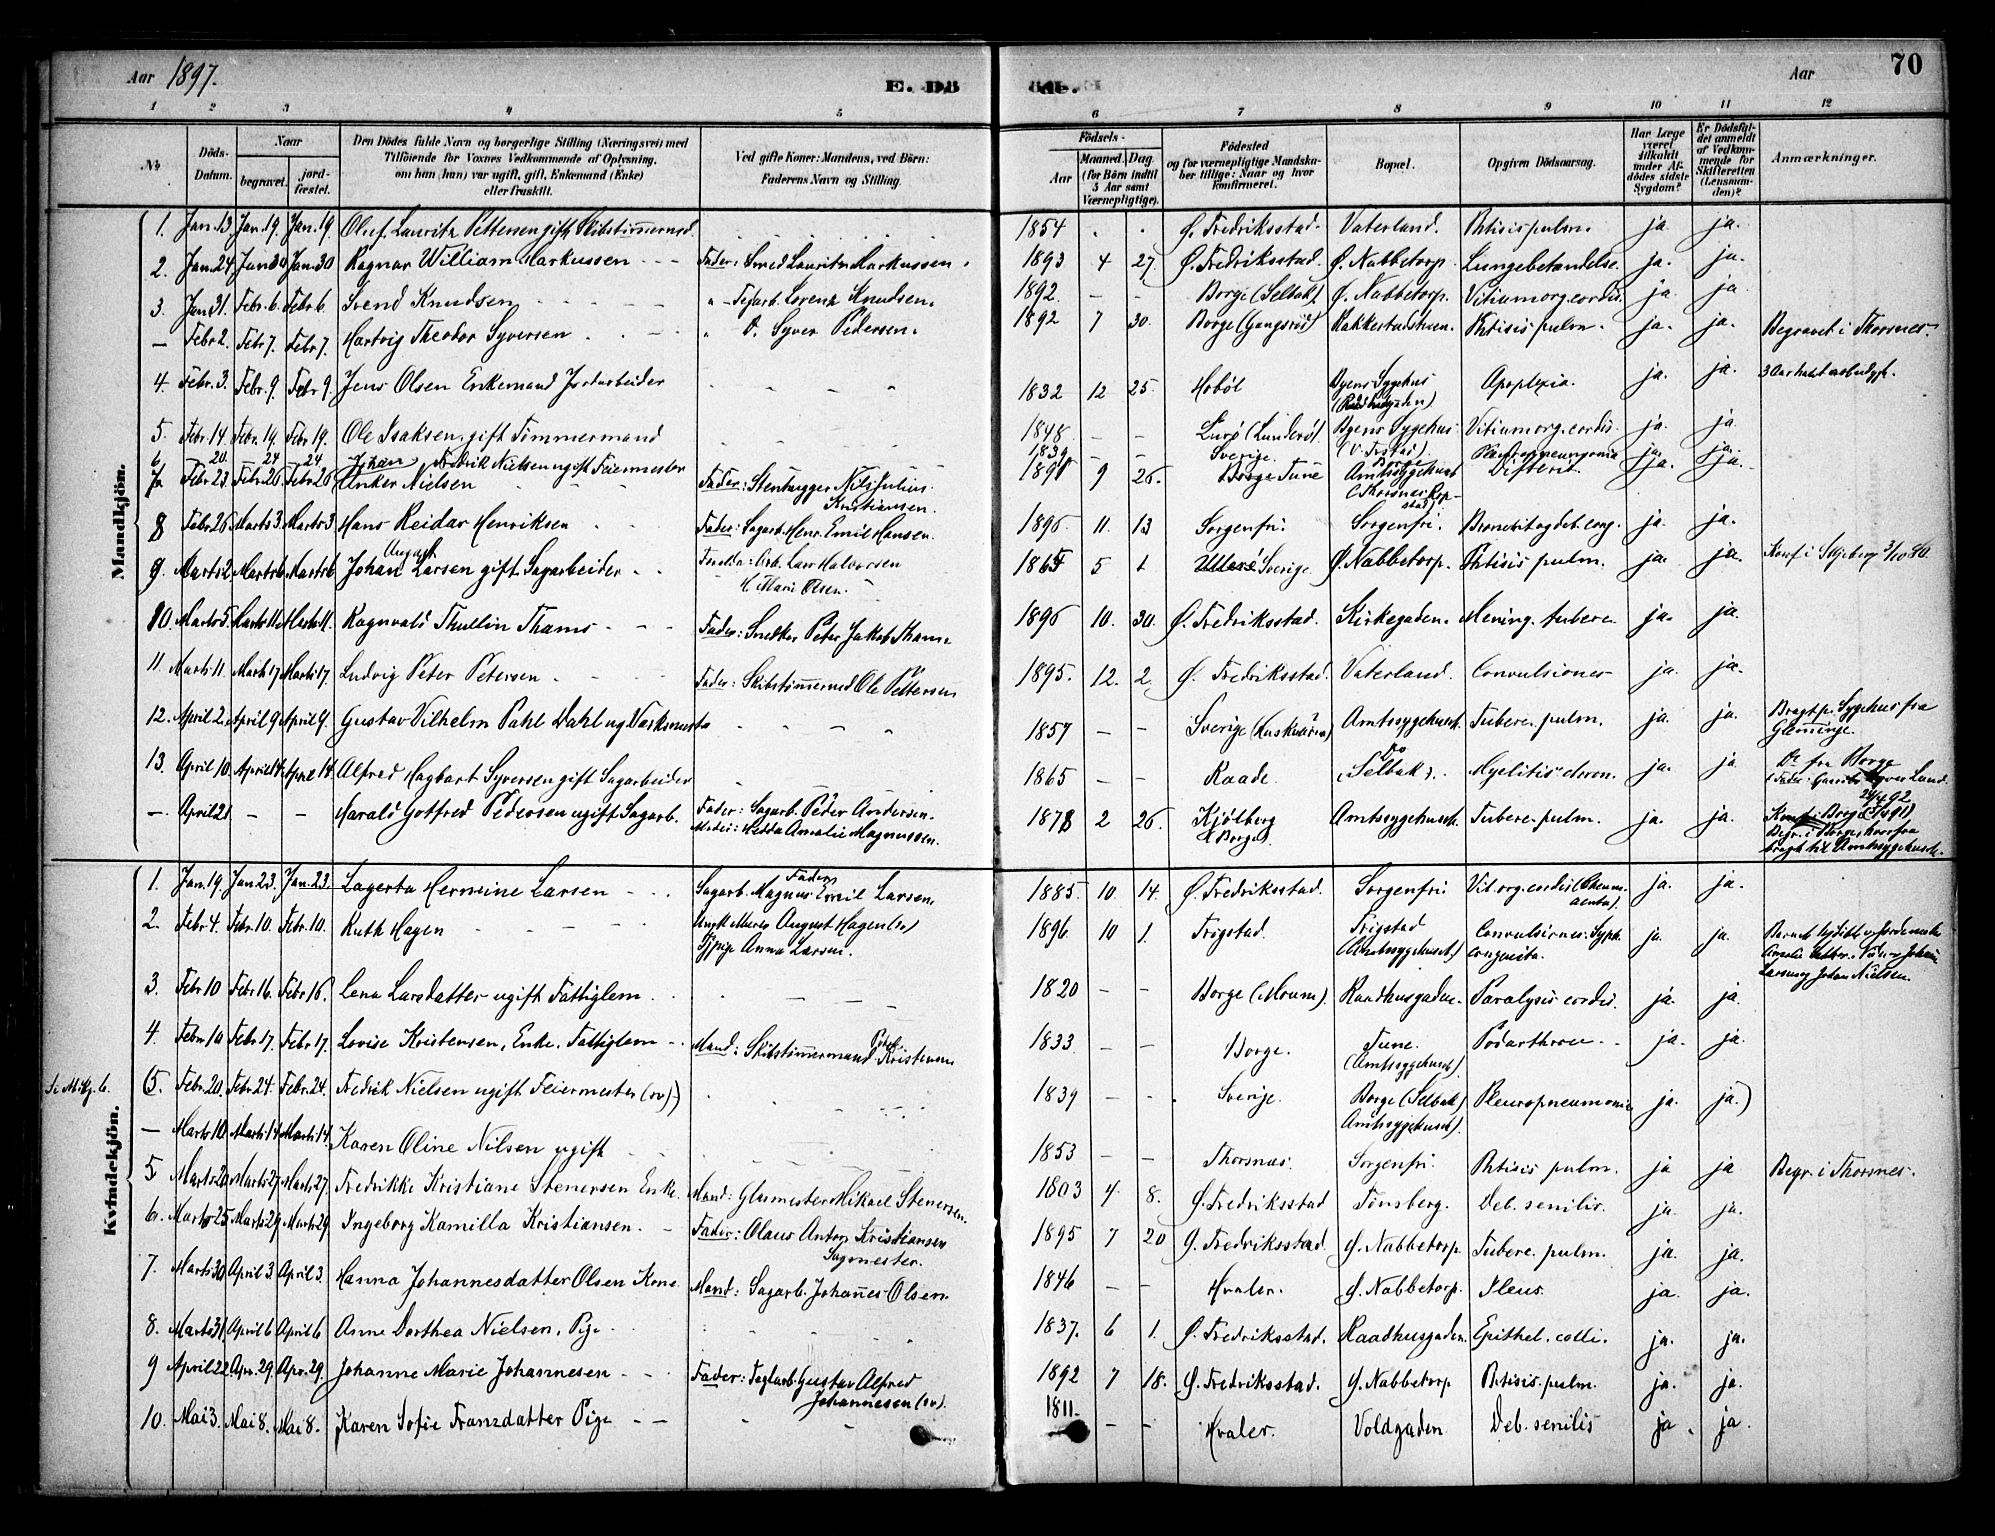 Aar 1897.
E. Dö
de.
Aar
70
1 2 3 4 5 6 7 8 9 10 11 12
No
Döds-Datum.
Naar
begravet.
jord-fæstet.
Den Dödes fulde Navn og borgerlige Stilling (Næringsvei) med
Tilföiende for Voxnes Vedkommende af Oplysning,
om han (hun) var ugift, gift, Enkemand (Enke)
eller fraskilt.
Ved gifte Koner: Mandens, ved Börn:
Faderens Navn og Stilling.
Födsels-
Aar
Maaned. Dag.
(for Börn indtil
5 Aar samt
Værnepligtige).
Födested
og for værnepligtige Mandska-
ber tillige: Naar og hvor
konfirmeret.
Bopæl.
Opgiven Dödsaarsag.
Har Læge
været
tilkaldt
under Af-
dödes sidste
Sygdom?
Er Dödsfal-
det anmeldt
af Vedkom-
mende for
Skifteretten
(Lensman-
den)?
Anmærkninger.
Mandkjön.
1. Jan. 13 Jan. 19. Jan. 19. Oluf Lauritz Pettersen gift Skibstimmermd. 1854 Ø. Fredriksstad. Vaterland. Phtisis pulm. ja ja.
2. Jan. 24 Jan 30 Jan 30 Ragnar William Markussen Fader: Smed Lauritz Markussen. 1893 4 27. Ø. Fredriksstad. Ø. Nabbetorp. Lungebetændelse. ja. ja.
3. Jan 31. Febr. 6. Febr 6. Svend Knudsen Teglarb. Lorenz Knudsen. 1892. Borge (Selbak). Ø. Nabbetorp. Vitium org. cordis. ja ja
— Febr 2. Febr 7. Febr 7. Hartvig Theodor Syversen D. Syver Pedersen. 1892 7 30. Borge (Gangsrød) Rakkestadsveien. Phtisis pulm. ja. ja. Begravet i Thorsnes.
4. Febr. 3. Febr. 9. Febr 9. Jens Olsen Enkemand Jordarbeider 1832 12 25. Hobøl Byens Sygehus
(Raadhusgaden) Apoplexia. ja. ja.
5. Febr. 14. Febr. 19. Febr. 19. Ole Isaksen, gift Timmermand 1848 Lurø (Lunderø). Byens Sygehus Vitium org. cordis ja. ja.
6 20. 24 24. Johan Fredrik Nielsen ugift Feiermester 1839 Sverige. ja. ja.
7. Febr 23. Febr 26 Febr 26 Anker Nielsen Fader: Stenhugger Nils Julius
Kristiansen. 1891 9 26. Tune Amtssygehuset Difteri. ja. ja.
8 Febr 26 Marts 3. Marts 3 Hans Reidar Henriksen Fader: Sagarb. Henr. Emil Hansen. 1896. 11. 13 Sorgenfri. Sorgenfri. ja. ja.
9. Marts 2 Marts 6. Marts 6 Johan August Larsen gift Sagarbeider Forældre: Arb. Lars Halvorsen
& Mari Olsen. 1865 5 1 Sverige Ø. Nabbetorp. Phtisis pulm. ja. ja. Konf. i
10. Marts 5. Marts 11. Marts 11. Ragnvald Thullin Thams Fader: Snedker Peter Jakob Thams 1896 10. 30. Ø. Fredriksstad. Kirkegaden. Mening. tuberc. ja. ja.
11. Marts 11. Marts 17 Marts 17. Ludvig Peter Petersen Fader: Skibstimmermd Ole Pettersen 1895. 12. 2 Ø. Fredriksstad. Vaterland. Convulsioner ja ja.
12. April 2. April 9 April 9. Gustav Vilhelm Pahl Dahl ug. 1857 Sverige Amtssygehuset. Tuberc. pulm. ja. ja. Bragt p. Sygehus fra
Glemminge.
13. April 10. April 14. April 14. Alfred Hagbart Syversen gift Sagarbeider 1865 Raade. (Selbak). Myelitis chron. ja. ja Do fra Borge
— April 21 — — Harald Gotfred Pedersen ugift Sagarb. Fader: Sagarb. Peder Andersen.
Moder: Hedda Amalie Magnussen. 1878 2 26. Kjølberg
(Borge). Amtssygehuset. Tuberc. pulm. ja. ja.
Kvindekjön.
1. Jan. 19. Jan 23. Jan. 23. Lagerta Hermine Larsen Fader
Sagarb. Magnus Emil Larsen. 1885. 10. 14. Ø. Fredriksstad. Sorgenfri Vit. org. cordis ja. ja.
2. Febr. 4. Febr. 10. Febr. 10. Ruth Hagen August Hagen
Anna Larsen. 1896 10 1. Trøgstad. Trøgstad
(Amtssygehuset) ja. ja.
3. Febr 10 Febr 16. Febr 16. Lena Larsdatter ugift Fattiglem 1820 Borge (Moum). Raadhusgaden. Paralysis cordis. ja. ja.
4. Febr 10 Febr. 17. Febr 17. Lovise Kristensen, Enke, Fattiglem Mand: Skibstimmermand Kristensen 1833 Borge. Tune.
(Amtssygehuset). Podarthroc. ja. ja.
(5. Febr. 20. Febr. 24. Febr. 24. Fredrik Nielsen ugift Feiermester 1839 Sverige. Borge (Selbak)
Amtssygehuset). Pleuropneumonia ja. ja.)
— Marts 10 Marts 14 Marts 14. Karen Oline Nilsen ugift 1853 Thorsnæs. Sorgenfri. Phtisis pulm. ja ja Begr. i Thorsnes.
5 Marts 20 Marts 27 Marts 27. Fredrikke Kristiane Stenersen Enke. Mand: Glarmester Mikael Stenersen. 1803 4. 8. Ø. Fredriksstad Tønsberg. Deb. senilis. ja. ja.
6. Marts 25 Marts 29 Marts 29. Ingeborg Kamilla Kristiansen. Fader: Olaus Anton Kristiansen
Sagmester. 1895 7 20 Ø. Fredriksstad. Ø. Nabbetorp. Tuberc. pulm. ja. ja.
7. Marts 30 April 3. April 3. Hanna Johannesdatter Olsen Kone. Mand: Sagarb. Johannes Olsen. 1846 Hvaler. Ø. Nabbetorp. Ileus. ja. ja.
8. Marts 31. April 6 April 6 Anne Dorthea Nielsen, Pige 1837. 6 1. Ø. Fredriksstad. Raadhusgaden. Epithel. colli. ja. ja.
9 April 22. Apr. 29. Apr. 29. Johanne Marie Johannesen Fader: Teglarb. Gustav Alfred
Johannesen 1892 7 18. Ø. Fredriksstad. Ø. Nabbetorp Phtisis pulm. ja. ja.
10. Mai 3. Mai 8. Mai 8. Karen Sofie Franzdatter Pige 1811. Hvaler. Voldgaden. Deb. senilis ja. ja.